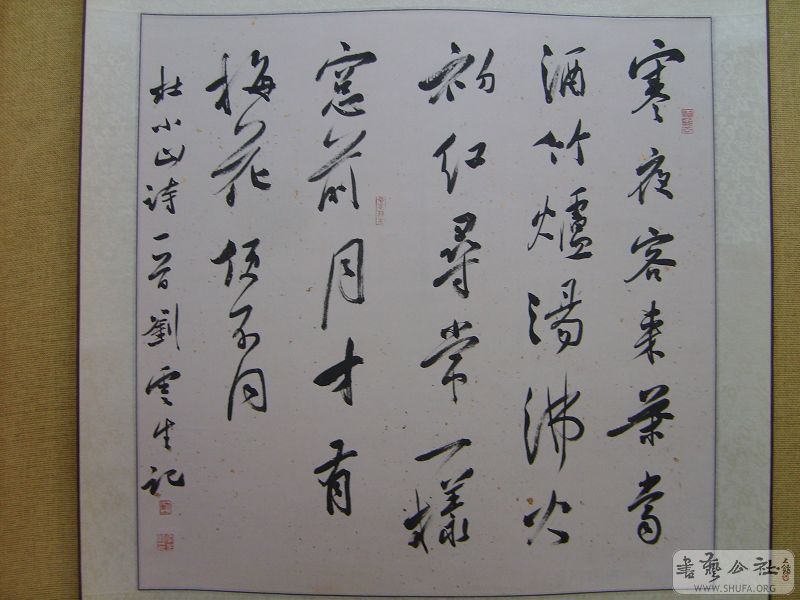 寒夜客来茶當
酒竹爐湯沸火
初紅尋常一樣
窓前月才有
梅花便不同
杜小山诗一首劉雲生记
書藝公社
WWW.SHUFA.ORG